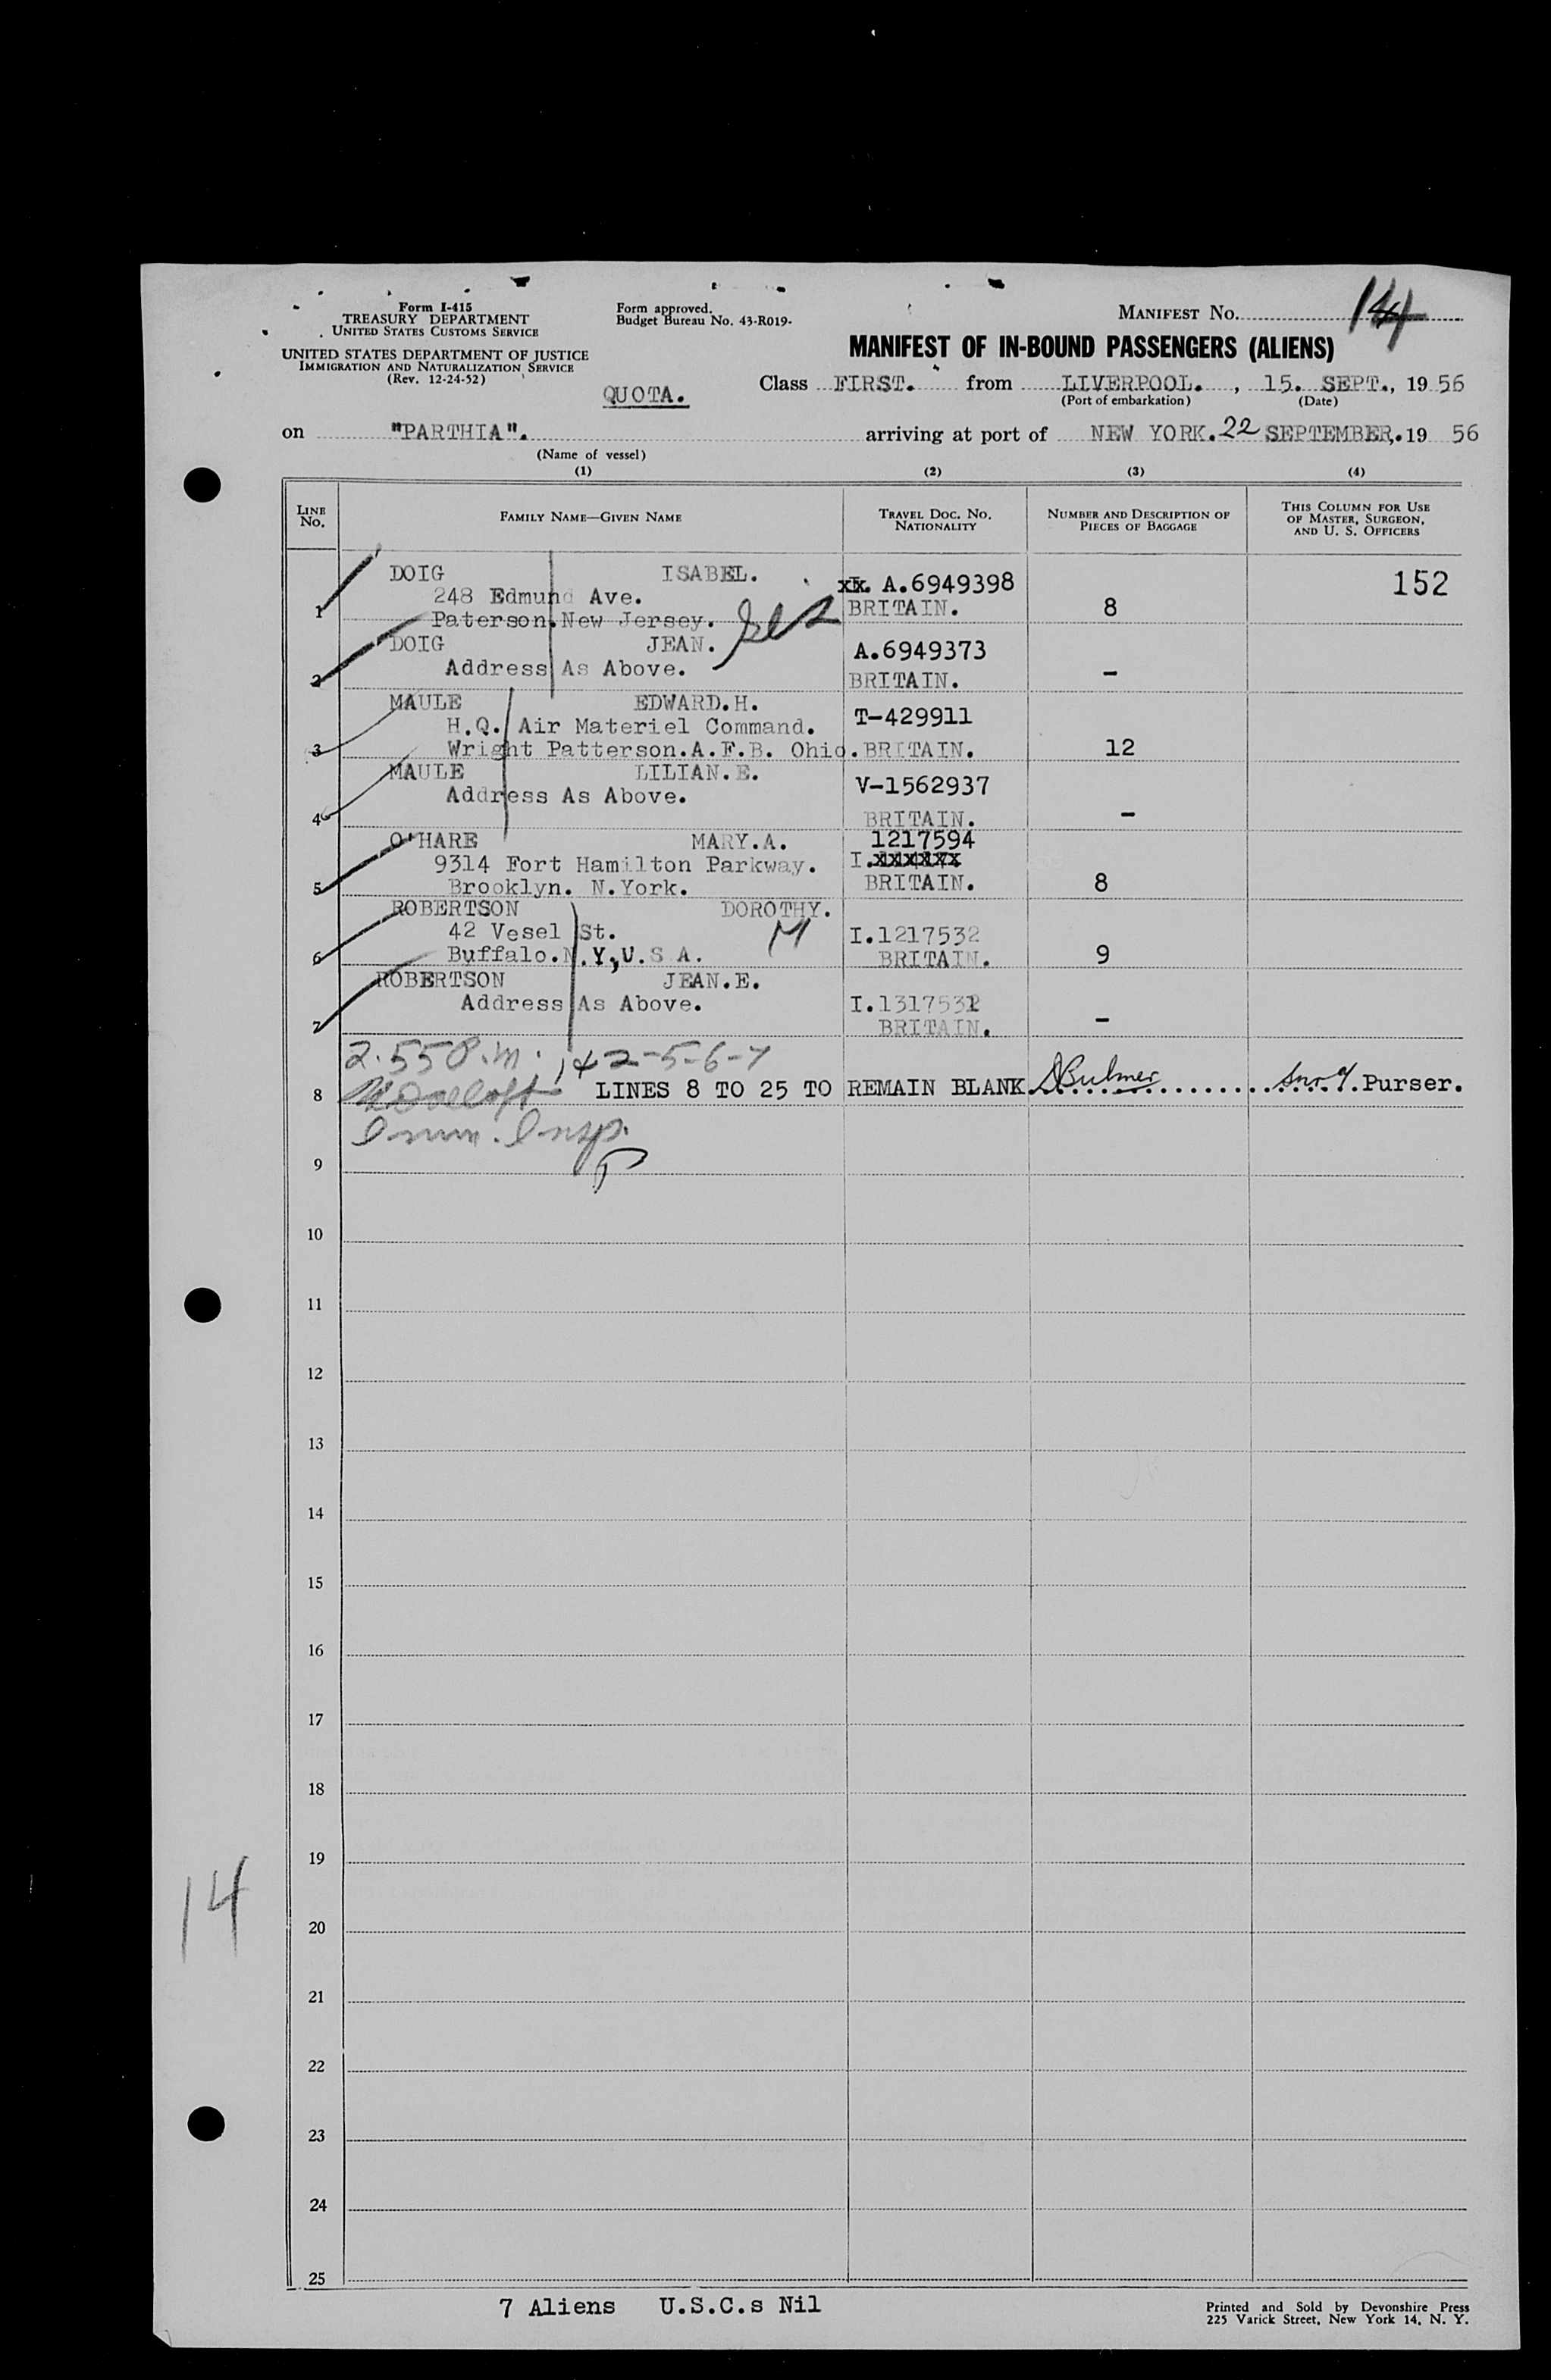 Form I-415
TREASURY DEPARTMENT
UNITED STATES CUSTOMS SERVICE
UNITED STATES DEPARTMENT OF JUSTICE
IMMIGRATION AND NATURALIZATION SERVICE
(Rev. 12-24-52)
Form approved.
Budget Bureau No. 43-R019-
MANIFEST No. 14
MANIFEST OF IN-BOUND PASSENGERS (ALIENS)
QUOTA.
Class FIRST. from LIVERPOOL. , 15. SEPT., 19 56
(Port of embarkation) (Date)
on "PARTHIA". arriving at port of NEW YORK. 22 SEPTEMBER,.19 56
(Name of vessel)
(1) (2) (3) (4)
LINE No. FAMILY NAME—GIVEN NAME TRAVEL DOC. NO. NATIONALITY NUMBER AND DESCRIPTION OF PIECES OF BAGGAGE THIS COLUMN FOR USE OF MASTER, SURGEON, AND U. S. OFFICERS
DOIG ISABEL. xx. A.6949398 152
248 Edmund Ave.
1 Paterson.New Jersey. BRITAIN. 8
DOIG JEAN. A.6949373
2 Address As Above. BRITAIN. –
MAULE EDWARD.H. T-429911
H.Q. Air Materiel Command.
3 Wright Patterson.A.F.B. Ohio. BRITAIN. 12
MAULE LILIAN.E. V-1562937
Address As Above.
4 BRITAIN. –
O'HARE MARY.A. 1217594
9314 Fort Hamilton Parkway. I.xxxxxxx
5 Brooklyn. N.York. BRITAIN. 8
ROBERTSON DOROTHY.
42 Vesel St. M I.1217532
6 Buffalo.N.Y,U.S A. BRITAIN. 9
ROBERTSON JEAN.E.
Address As Above. I.1317531
7 BRITAIN. –
2.55P.m. 1+2-5-6-7
8 LINES 8 TO 25 TO REMAIN BLANK. DBulmer Purser.
Imm. Insp.
9
10
11
12
13
14
15
16
17
18
19
14
20
21
22
23
24
25
7 Aliens U.S.C.s Nil
Printed and Sold by Devonshire Press
225 Varick Street, New York 14, N. Y.